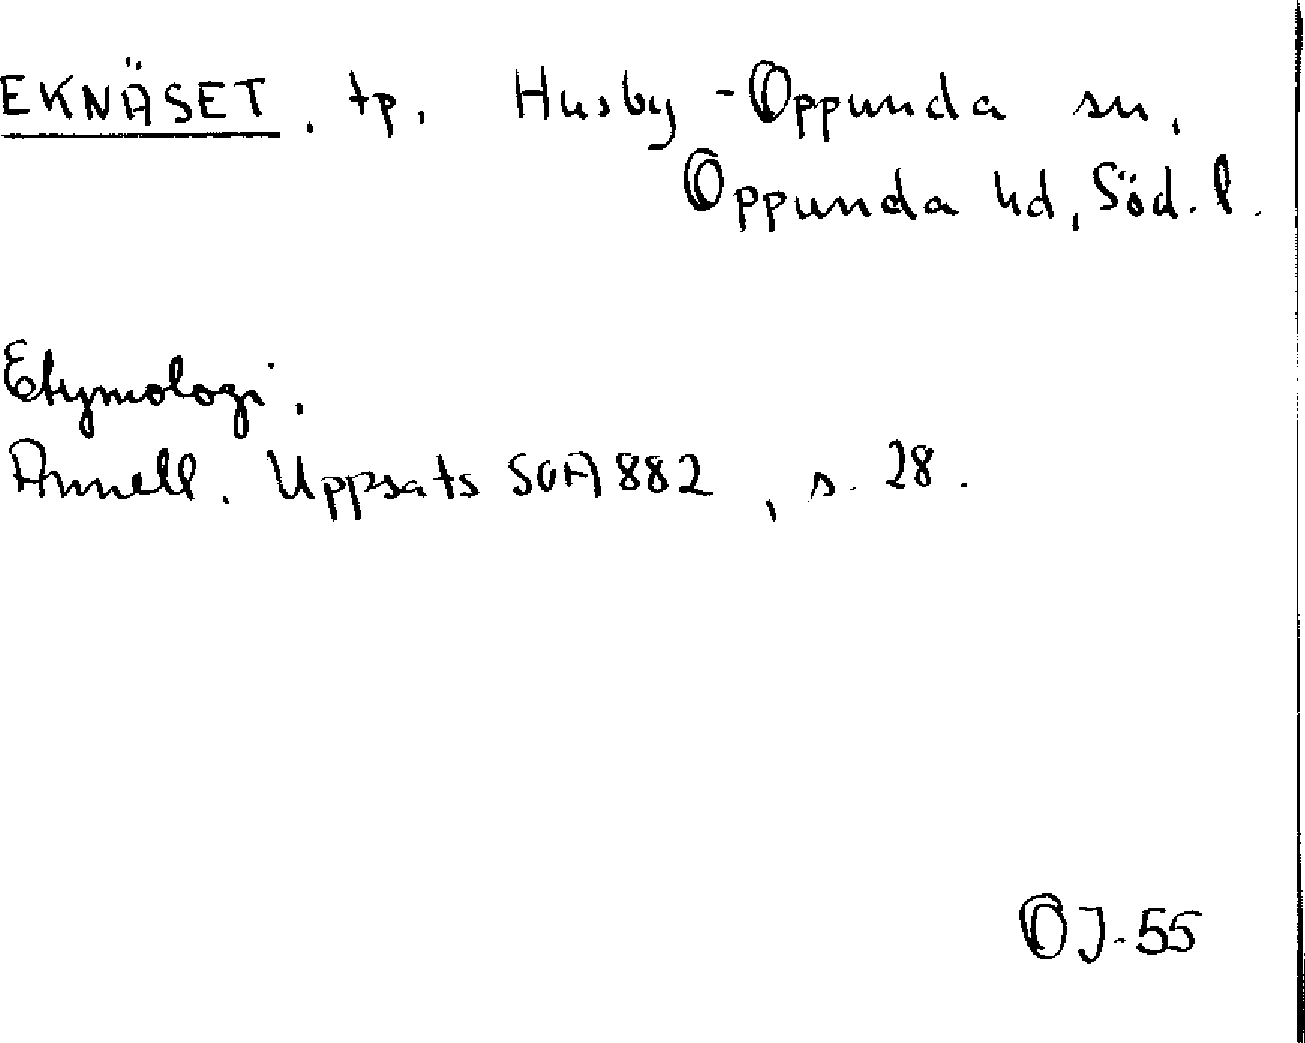 EKNÄSET, tp. Husby-Oppunda sn,
Oppunda hd, Söd. l.
Etymologi.
Annell. Uppsats SOA 882, s. 28.
OJ-55